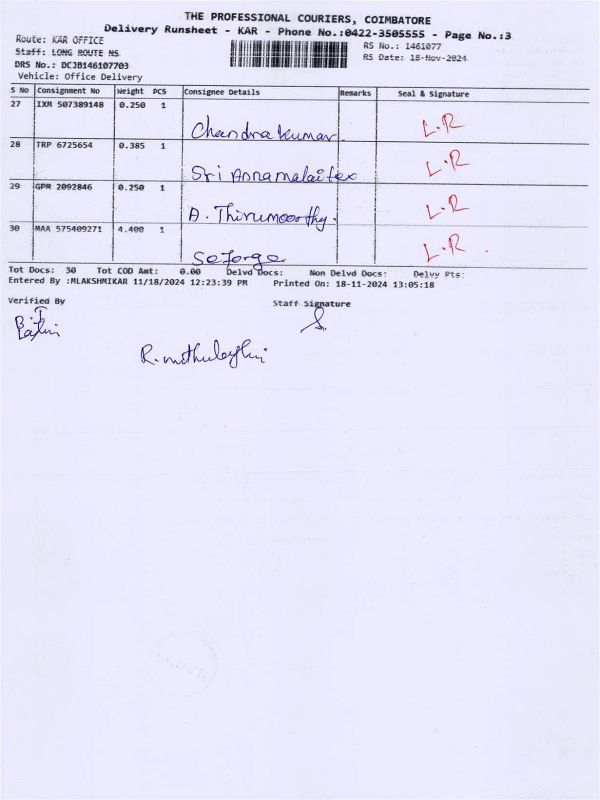 THE PROFESSIONAL COURIERS, COIMBATORE
Delivery Runsheet - KAR - Phone No.:0422-3505555 - Page No.:3
Route: KAR OFFICE
RS No.: 1461077
Staff: LONG ROUTE NS
RS Date: 18-Nov-2024
DRS No.: DCJB146107703
Vehicle: Office Delivery
S No Consignment No Weight PCS Consignee Details Remarks Seal & Signature
27 IXM 507389148 0.250 1
Chandrakumar L.R
28 TRP 6725654 0.385 1
Sri Annamalai tex L.R
29 GPM 2092846 0.250 1
A. Thirumoorthy. L.R
30 MAA 575409271 4.400 1
Seforge L.R
Tot Docs: 30 Tot COD Amt: 0.00 Delvd Docs: Non Delvd Docs: Delvy Pts:
Entered By :MLAKSHMIKAR 11/18/2024 12:23:39 PM Printed On: 18-11-2024 13:05:18
Verified By Staff Signature
S.